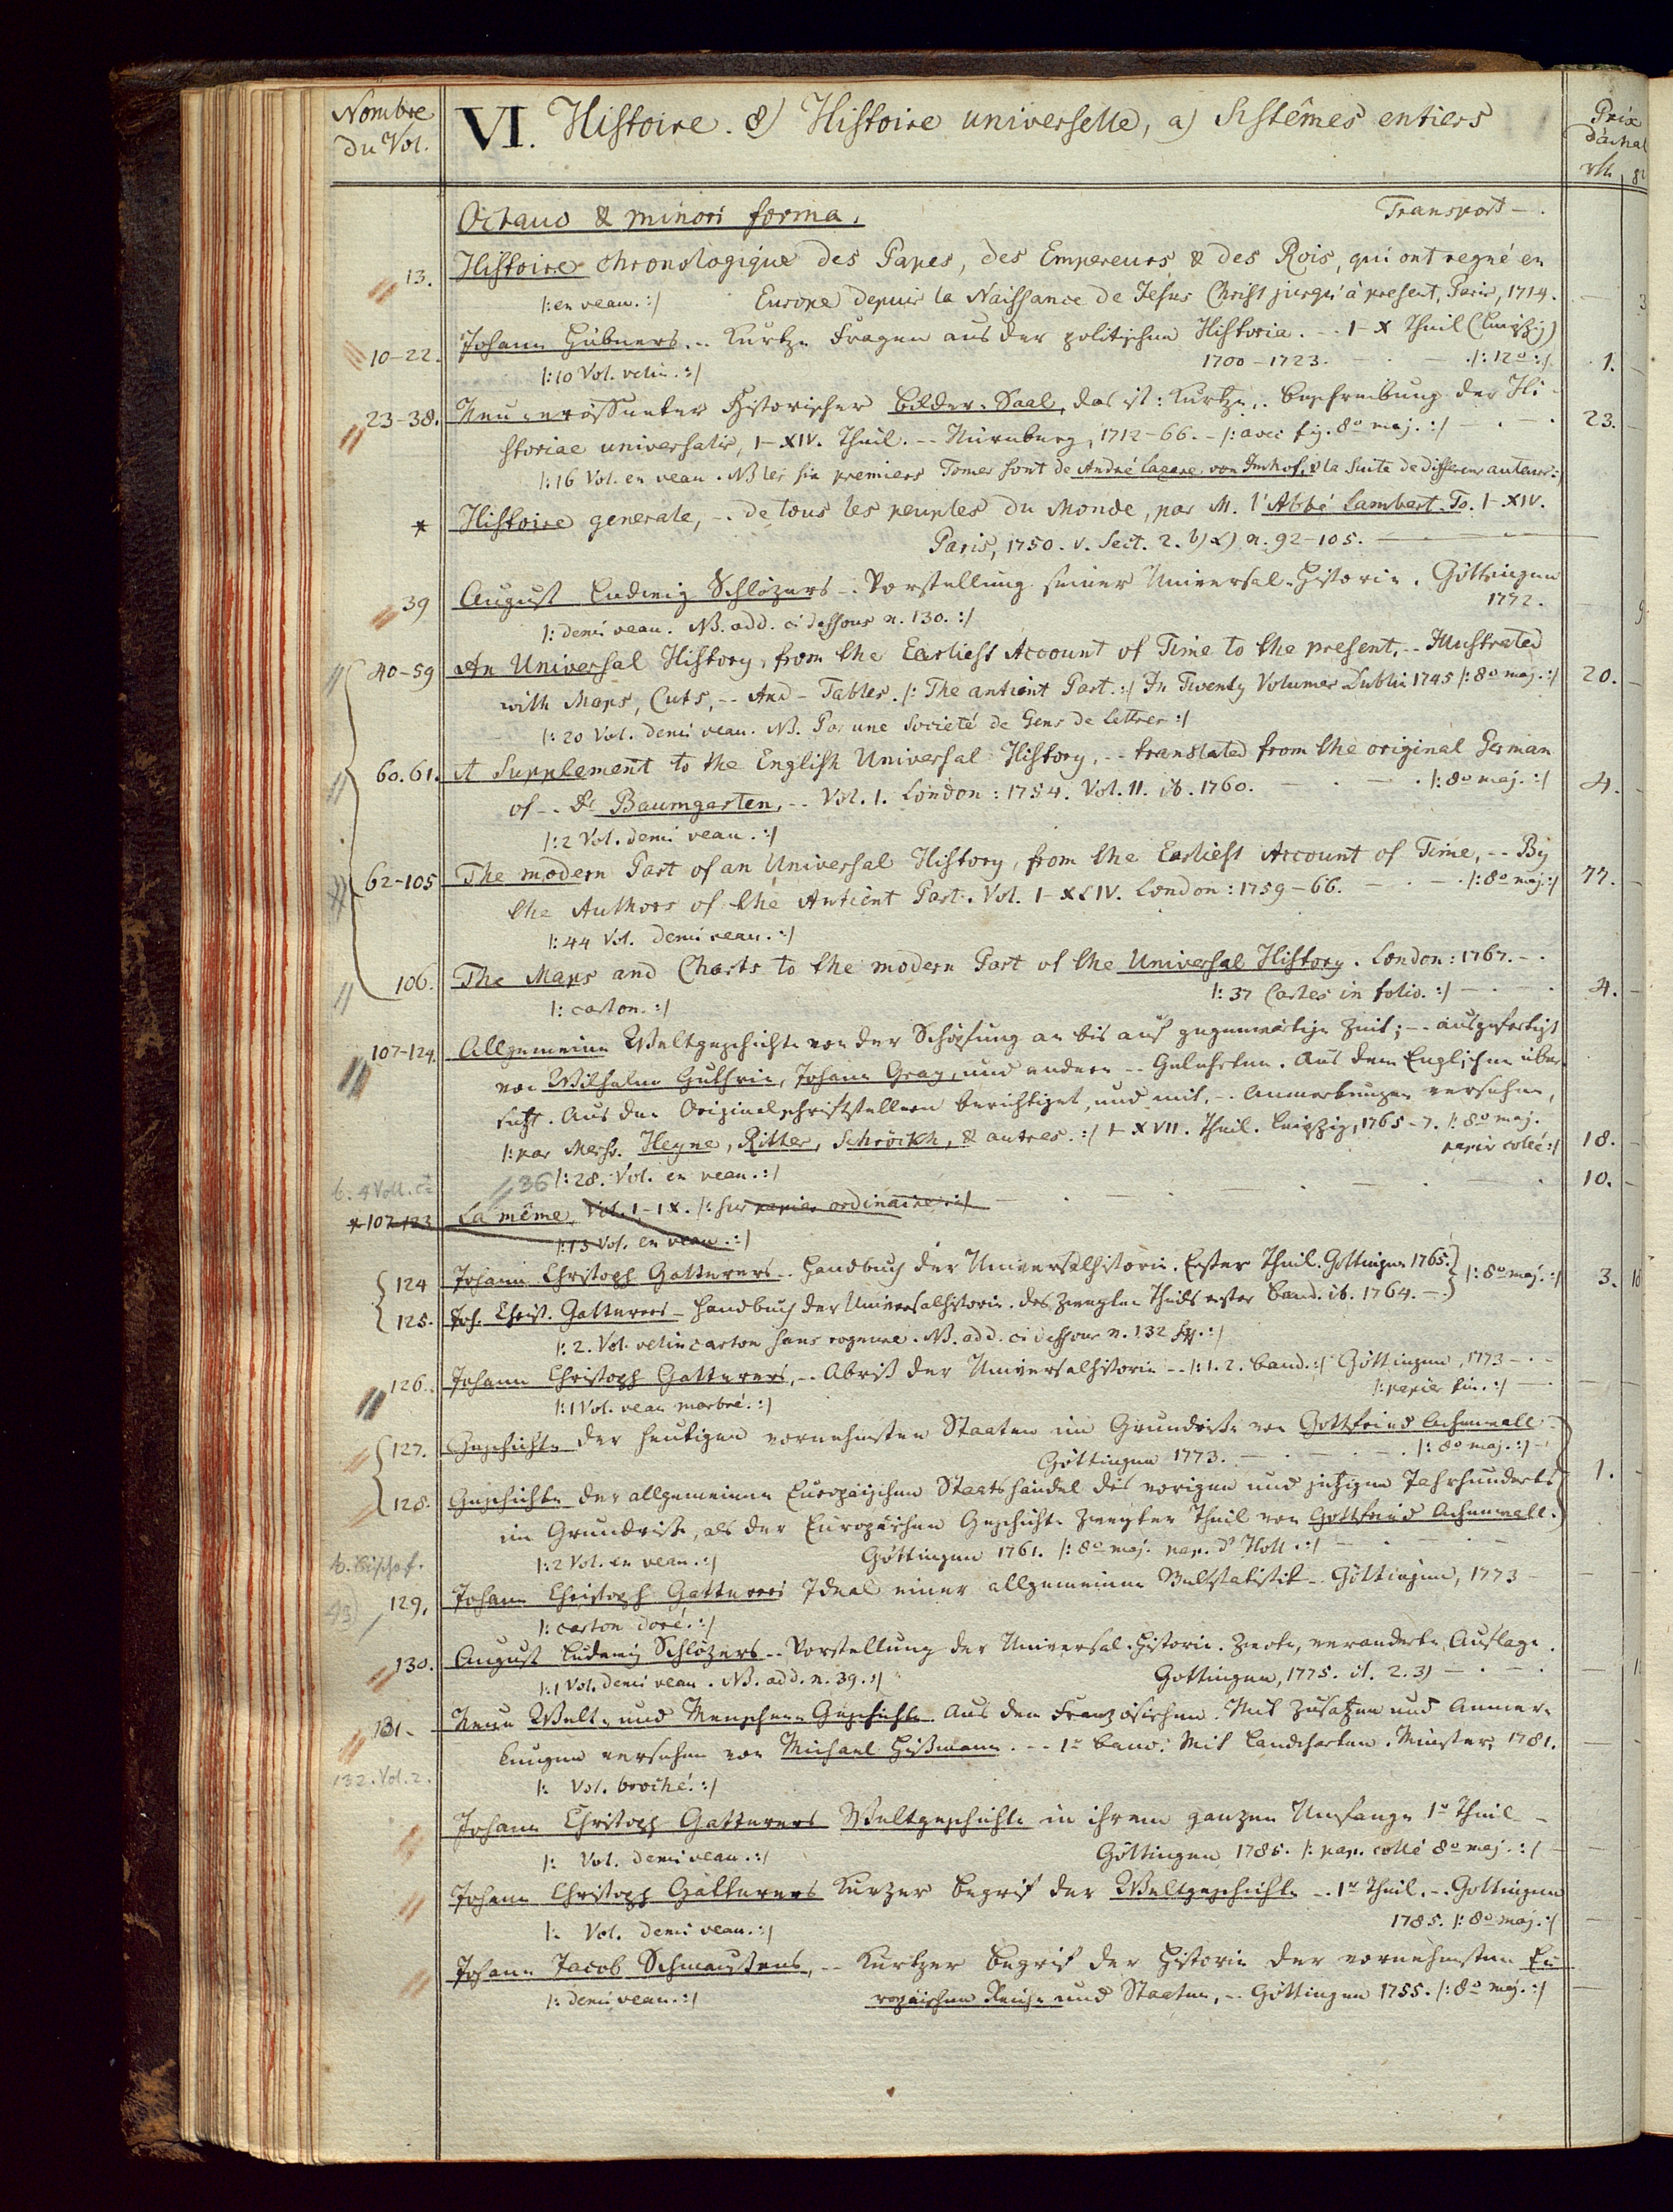 Nombre
du Vol.
VI. Histoire. 8) Histoire universelle, a) Sistêmes entiers
Prix
d'achat
rth.
Octavo & minori forma.
Transport - .
13. Histoire chronologique des Papes, des Empereurs & des Rois, qui ont regné en
|: en veau. :| Europe depuis la Naissance de Jesus Christ jusqu'à present, Paris, 1714.
10-22. Johann Hübners. .. Kurtze Fragen aus der politischen Historia. - . 1-X Theil (Leipzig)
1700-1723. - . - . |: 12o :| 1.
|: 10 Vol. velin. :|
23-38. Neu eröffneter Historischer Bilder-Saal, das ist: Kurtze,. Beschreibung der Hi-
storiae universalis, 1-XIV. Theil. -- Nürnberg, 1712-66. - |: avec fig. 8o maj. :| - . - . 23.
|: 16 Vol. en veau. NB les six premiers Tomes sont de André Lazare von Imhof, & la suite de differens auteurs :|
* Histoire generale, -. de tous les peuples du Monde, par M. l'Abbé Lambert. To. 1-XIV.
Paris, 1750. v. Sect. 2. b) α) n. 92-105.
39 August Ludwig Schlözers -. Vorstellung seiner Universal-Historie. Göttingen
1772.
|: demi veau. NB. add. ci dessous n. 130. :|
40-59 An Universal History, from the Earliest Account of Time to the present, -- Illustrated
with Maps, Cuts, -- And - Tables. |: The antient Part. :| In Twenty Volumes Dublin 1745 |: 8o maj. :| 20.
|: 20 Vol. demi veau. NB. Par une Societé de Gens de Lettres :|
60.61. A Supplement to the English Universal History, -- translated from the original German
of -. Dr Baumgarten, -- Vol. 1. London: 1754. Vol. II. ib. 1760. - . - . |: 8o maj. :| 4.
|: 2 Vol. demi veau. :|
62-105 The modern Part of an Universal History, from the Earliest Account of Time, -- By
the Authors of the Antient Part. Vol. 1-XLIV. London: 1759-66. - . - . |: 8o maj :| 77.
|: 44 Vol. demi veau. :|
106. The Maps and Charts to the modern Part of the Universal History. London: 1767. - .
|: 37 Cartes in folio. :| - . - . 4.
|: carton. :|
107-124. Allgemeine Weltgeschichte von der Schöpfung an bis auf gegenwärtige Zeit; -- ausgefertigt
von Wilhelm Guthrie, Johann Gray, und andern -- Gelehrten. Aus dem Englischen über-
setzt. Aus den Originalschriftstellern berichtiget, und mit, -. Anmerkungen versehen,
|: par Mess. Heyne, Ritter, Schröckh, & autres. :| 1-XVII. Theil. Leipzig, 1765-7. |: 8o maj.
papier collé :| 18.
36 |: 28. Vol. en veau. :|
10.
*107-123 La même, Vol. 1-IX. |: sur papier ordinaire :|
|: 13 Vol. en veau. :|
124 Johann Christoph Gatterers .. Handbuch der Universalhistorie. Erster Theil. Göttingen 1765.
|: 8o maj. :| 3.
125. Joh. Christ. Gatterers - Handbuch der Universalhistorie. des zweyten Theils erster Band. ib. 1764. -.
|: 2. Vol. velin carton sans rognure. NB. add. ci dessous n. 132 sq. :|
126. Johann Christoph Gatterers, -. Abriß der Universalhistorie -- |: 1. 2. Band. :| Göttingen, 1773 - . -
|: papier fin. :|
|: 1 Vol. veau marbré. :|
127. Geschichte der heutigen vornehmsten Staaten im Grundriße von Gottfried Achenwall -
Göttingen 1773. - . - . - . |: 8o maj. :|
128. Geschichte der allgemeinen Europäischen Staatshändel des vorigen und jetzigen Jahrhunderts 1.
im Grundriße, als der Europäischen Geschichte Zweyter Theil von Gottfried Achenwall.
Göttingen 1761. |: 8o maj. pap. d'Holl. :|
|: 2 Vol. en veau. :|
129. Johann Christoph Gatterers Ideal einer allgemeinen Weltstatistik -. Göttingen, 1773 -
|: carton doré. :|
130. August Ludewig Schlözers -. Vorstellung der Universal-Historie. Zwote, veränderte Auflage.
Göttingen, 1775. - . - .
|: 1 Vol. demi veau. NB. add. n. 39. :|
131. Neue Welt- und Menschen-Geschichte. Aus dem Französischen. Mit Zusätzen und Anmer-
kungen versehen von Michael Hißmann. -- 1r Band. Mit Landcharten. Münster, 1781.
132. Vol. 2.
|: Vol. broché. :|
Johann Christoph Gatterers Weltgeschichte in ihrem ganzen Umfange 1r Theil -
Göttingen 1785. |: pap. collé 8o maj. :|
|: Vol. demi veau. :|
Johann Christoph Gatterers Kurzer Begrif der Weltgeschichte -. 1r Theil. -. Göttingen
1785. |: 8o maj. :|
|: Vol. demi veau. :|
Johann Jacob Schmaußens, -- Kurtzer Begrif der Historie der vornehmsten Eu-
ropäischen Reiche und Staaten, -. Göttingen 1755. |: 8o maj. :|
|: demi veau. :|